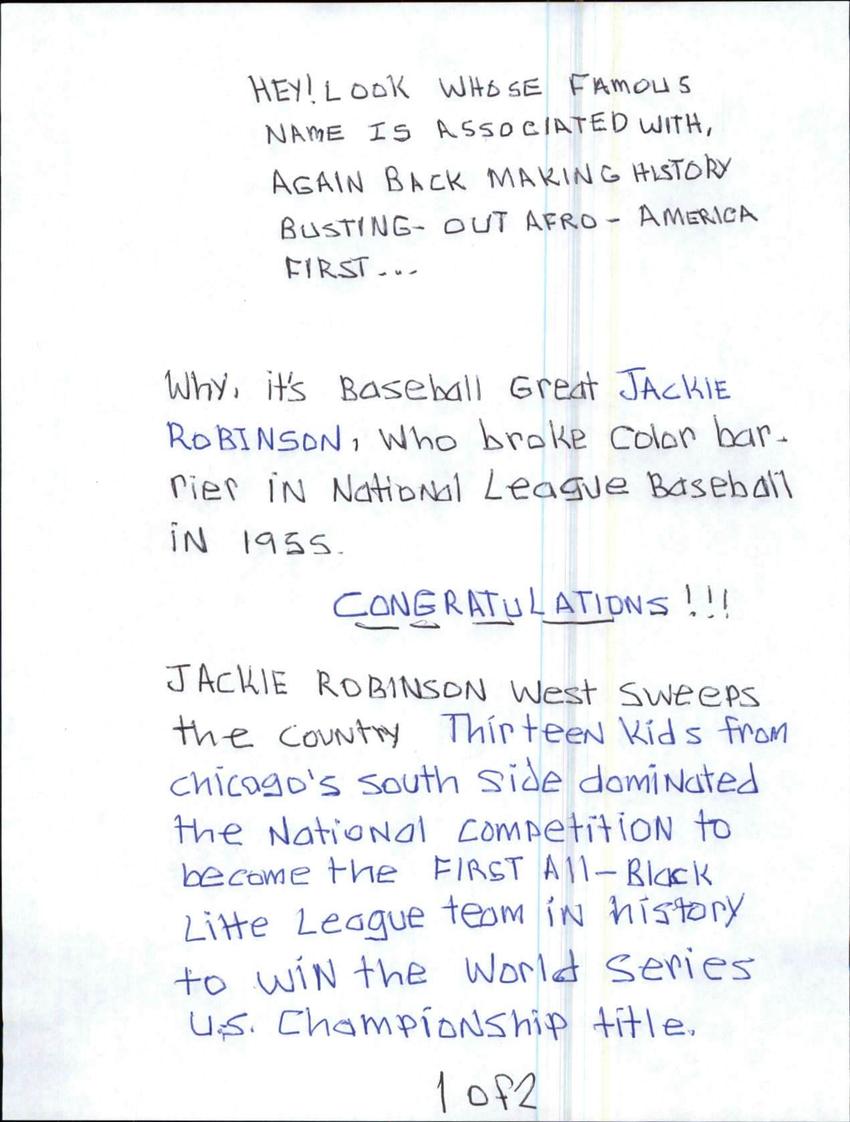 HEY! LOOK WHOSE FAMOUS
NAME IS ASSOCIATED WITH,
AGAIN BACK MAKING HISTORY
BUSTING- OUT AFRO - AMERICA
FIRST...
Why, it's Baseball Great JACKIE
ROBINSON, Who broke Color bar-
rier iN National League Baseball
iN 1955.
CONGRATULATIONS!!!
JACKIE ROBINSON West SWEEPS
the COUNTRY Thirteen Kids from
chicago's south side domiNated
the NatioNal competitioN to
become the FIRST All-Black
Litte League team iN history
to wiN the World Series
U.S. ChampioNship title.
1 of 2